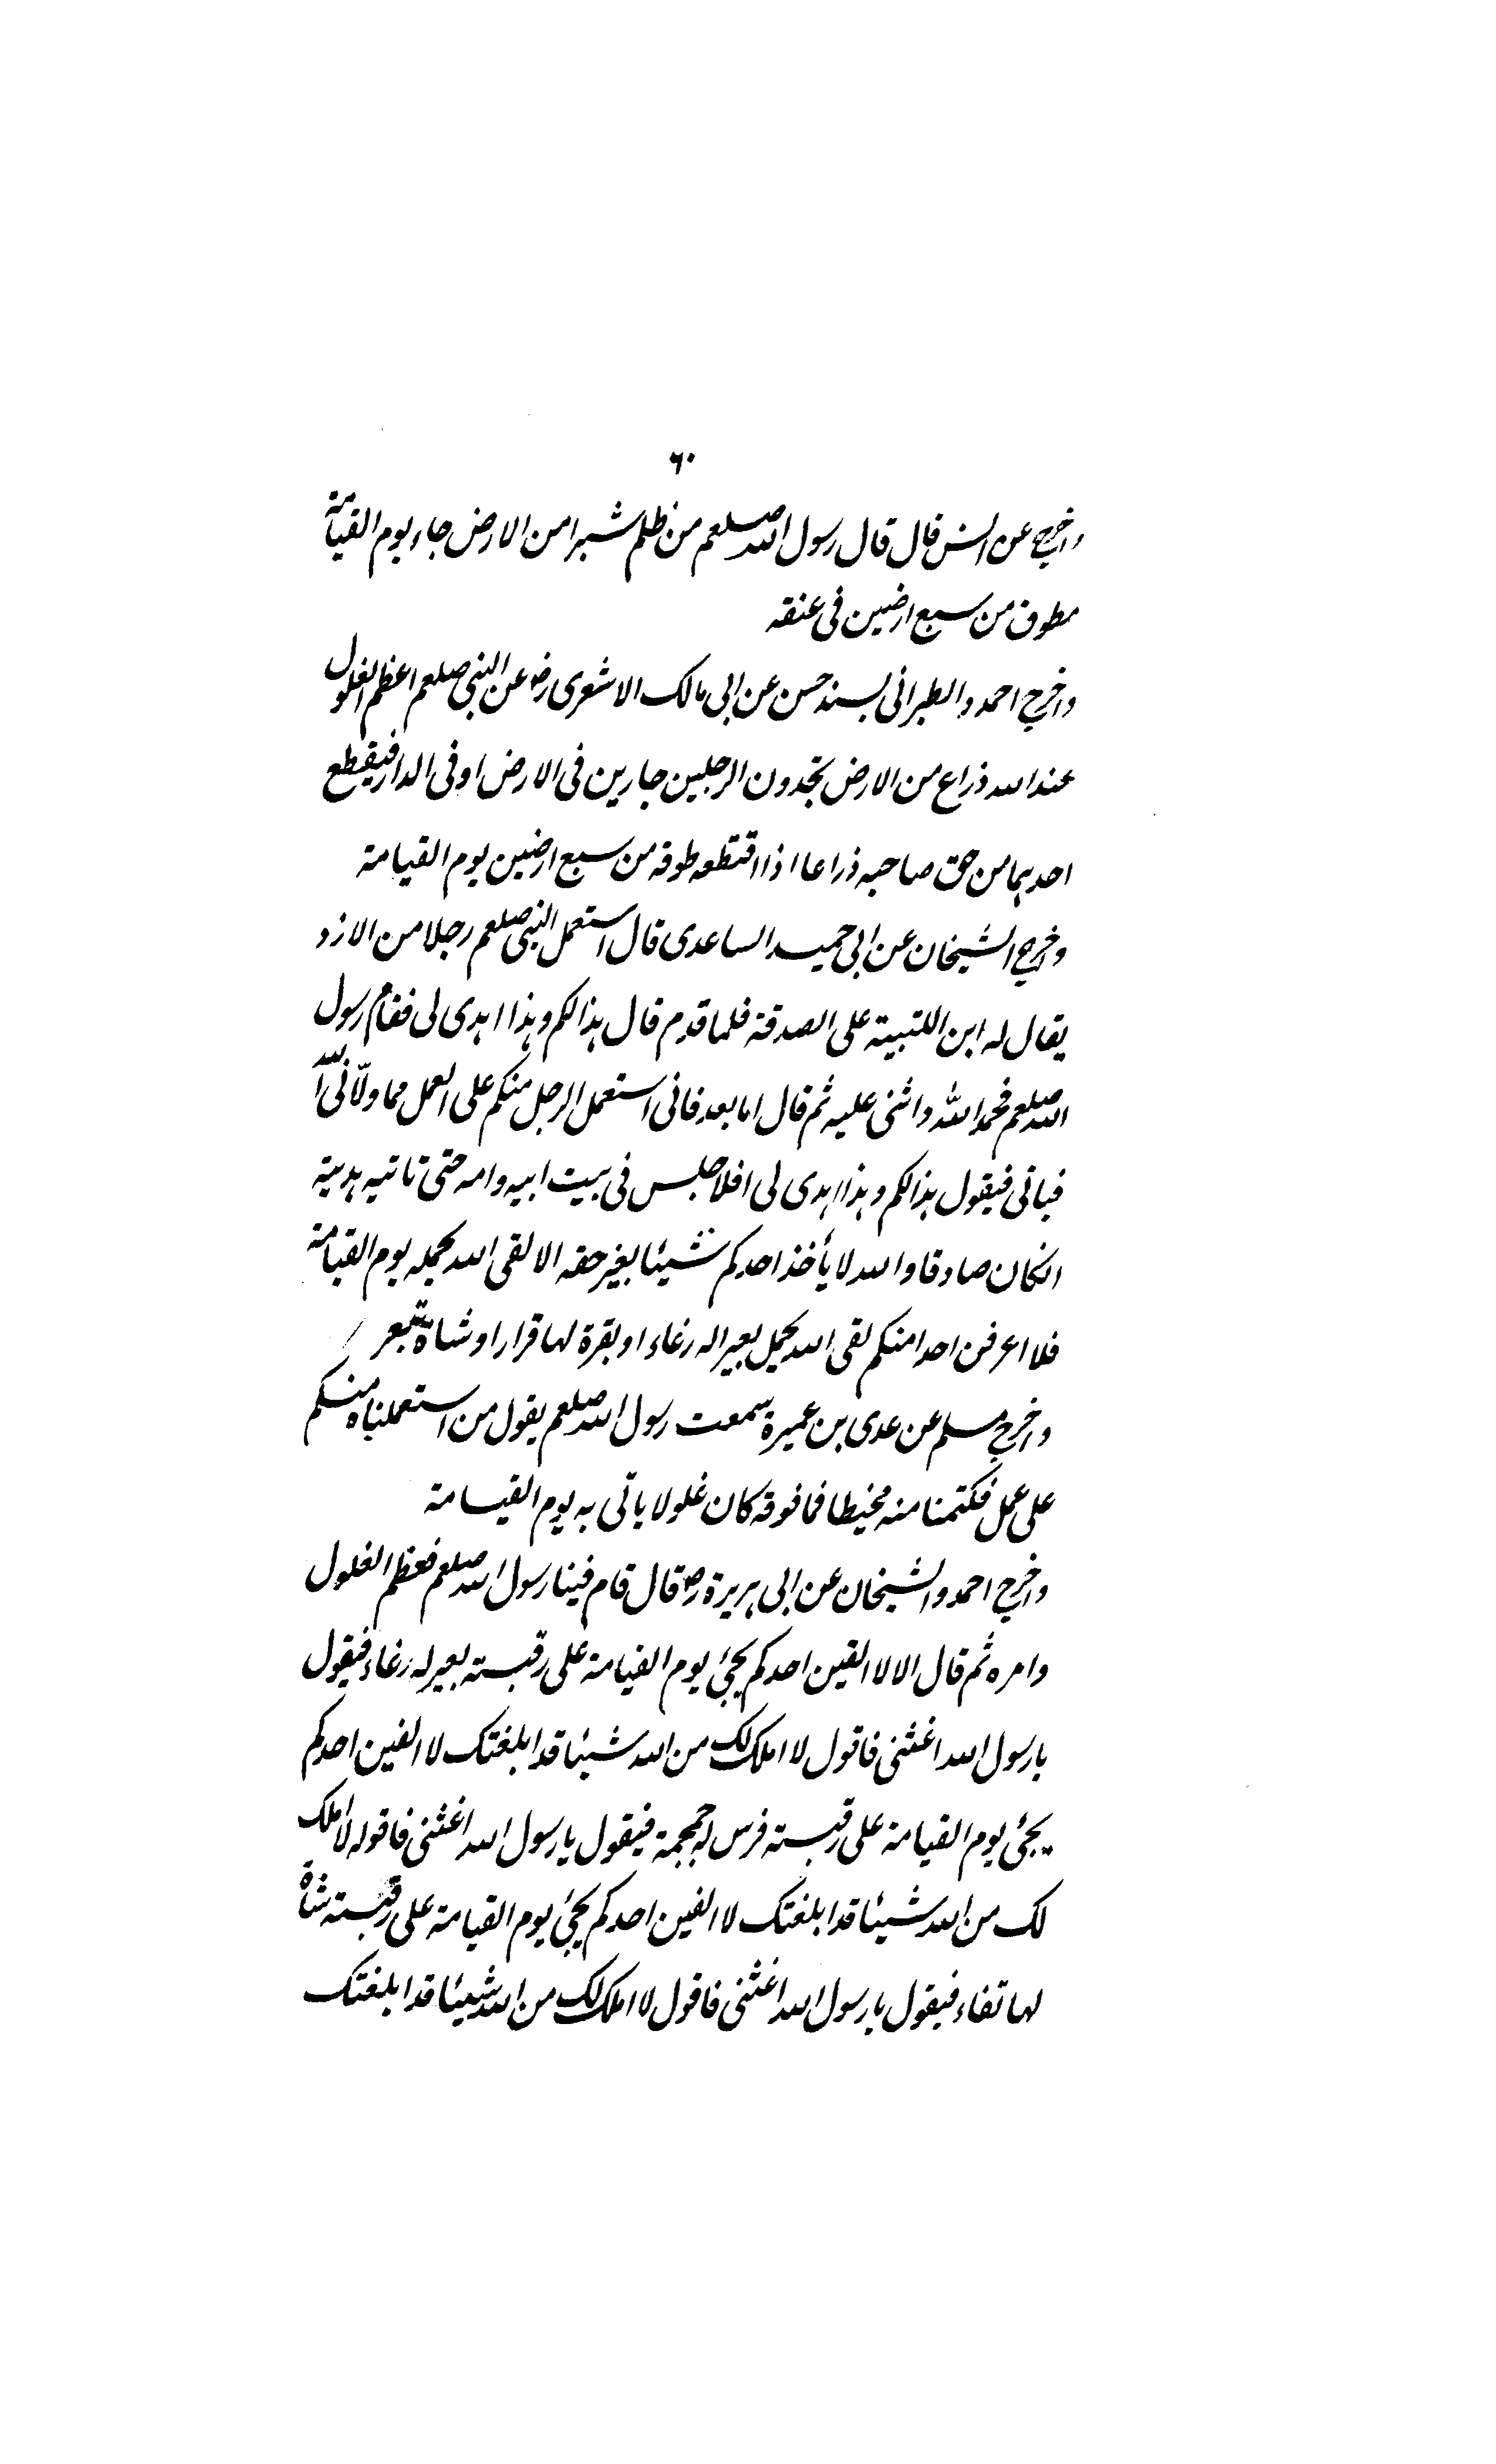 ٦٠
واخرج عن انس قال قال رسول الله صلعم من ظلم شبرا من الارض جاء يوم القيامة
مطوف من سبع ارضين فى عنقه
واخرج احمد والطبرانى بسند حسن عن ابى مالك الاشعرى رضـ عن النبى صلعم اعظم الغلول
عند الله ذراع من الارض تجدون الرجلين جارين فى الارض او فى الدار فيقطع
احدهما من حق صاحبه ذراعا اذا اقتطعه طوقه من سبع ارضين يوم القيامة
واخرج الشيخان عن ابى حميد الساعدى قال استعمل النبى صلعم رجلا من الازد
يقال له ابن اللتبية على الصدقة فلما قدم قال هذا لكم وهذا اهدى لى فقام رسول
الله صلعم فحمد الله واثنى عليه ثم قال اما بعد فانى استعمل الرجل منكم على العمل مما ولّانى الله
فياتى فيقول هذا لكم وهذا اهدى لى افلا جلس فى بيت ابيه وامه حتى تاتيه هدية
انكان صادقا والله لا يأخذ احدكم شيئا بغير حقه الا لقى الله يحمله يوم القيامة
فلا اعرفن احدا منكم لقى الله يحمل بعيرا له رغاء او بقرة لها قرار او شاة تيعر
واخرج مسلم عن عدى بن عميرة سمعت رسول الله صلعم يقول من استعملناه منكم
على عمل فكتمنا منه مخيطا فما فوقه كان غلولا ياتى به يوم القيامة
واخرج احمد والشيخان عن ابى هريرة رضـ قال قام فينا رسول الله صلعم فعظم الغلول
وامره ثم قال الا لا القين احدكم يجئ يوم القيامة على رقبته بعير له رغاء فيقول
يا رسول الله اغثنى فاقول لا املك لك من الله شيئا قد ابلغتك لا الفين احدكم
يجئ يوم القيامة على رقبته فرس له حمحمة فيقول يا رسول الله اغثنى فاقوله لا املك
لك من الله شيئا قد ابلغتك لا الفين احدكم يجئ يوم القيامة على رقبته شاة
لها تغاء فيقول يا رسول الله اغثنى فاقول لا املك لك من الله شيئا قد ابلغتك